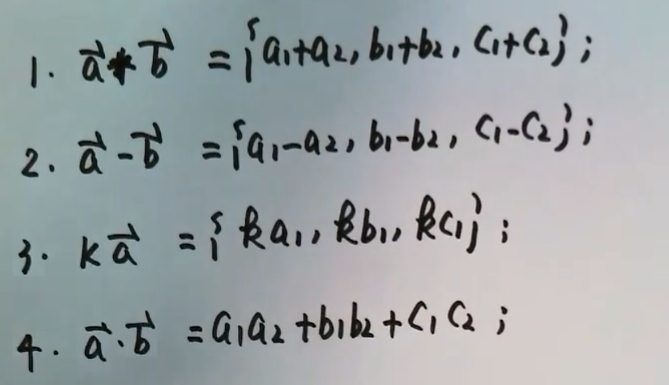 1. a⃗ + b⃗ = {a₁+a₂, b₁+b₂, c₁+c₂};
2. a⃗ - b⃗ = {a₁-a₂, b₁-b₂, c₁-c₂};
3. k a⃗ = {ka₁, kb₁, kc₁};
4. a⃗ · b⃗ = a₁a₂ + b₁b₂ + c₁c₂;